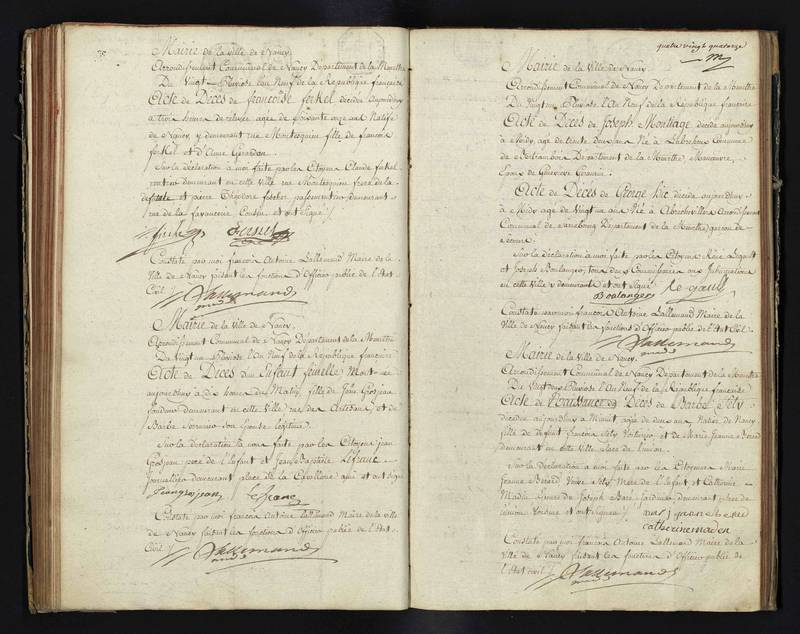 Mairie de la ville de Nancy
Arrondissement Communal de Nancy Departement de la Meurthe
Du Vingt Pluviose l'an Neuf de la Republique francaise
Acte de Déces de francoise forkel decidee aujourdhuy
a trois heures de relevee agee de soixante onze ans Native
de Nancy y demeurant rue Montesquieu fille de francois
forkel et d'Anne Gerardan
Sur la déclaration à moi faite par les Citoyens Claude forkel
rentier demeurant en cette Ville rue Montesquieu frere de la
et pierre Théodore passementier demeurant
rue de la fayancerie Cousin et ont signé
Constaté par moi francois Antoine Lallemand Maire de la
Ville de Nancy faisant les fonctions d'Officier public de l'Etat
Civil
Lallemand
Mairie de la Ville de Nancy
Arrondissement Communal de Nancy Département de la Meurthe
Du Vingt un Pluviose l'An Neuf de la République francaise
Acte de Déces d'un Enfant femelle Mort née
aujourdhuy à dix heures du Matin fille de Jean Grosjean
demeurant en cette Ville rue des Artisans et de
Barbe son Epouse légitime
Sur la déclaration à moi faite par les Citoyens Jean
Grosjean pere de l'Enfant et Jean Baptiste Lefranc
Journalier demeurant place de la Cavallerie qui ont signé
Jean grosjean Lefranc
Constaté par moi francois Antoine Lallemand Maire de la ville
de Nancy faisant les fonctions d'Officier public de l'Etat
Civil
Lallemand
quatre vingt quatorze
Mairie de la Ville de Nancy
Arrondissement Communal de Nancy Département de la Meurthe
Du Vingt un Pluviose l'An Neuf de la République francaise
Acte de Déces de Joseph Mouttage décidé aujourdhuy
à Midy agé de trente deux ans Né à Commune
de Bertrambois Departement de la Meurthe, Manœuvre,
Epoux de Genevieve
Acte de Déces de George hic décidé aujourdhuy
à Midy agé de Vingt un ans Né à Abrechviller Arrondissement
Communal de Sarrebourg Departement de la Meurthe garcon de
Sur la déclaration à moi faite par les Citoyens René Legault
et Joseph Boulanger, tous deux
en cette Ville y demeurant et ont signé
Boulanger Legault
Constaté par moi francois Antoine Lallemand Maire de la
Ville de Nancy faisant les fonctions d'Officier public de l'Etat Civil
Lallemand
Mairie de la Ville de Nancy
Arrondissement Communal de Nancy Département de la Meurthe
Du Vingt deux Pluviose l'An Neuf de la République francaise
Acte de Naissance Déces de Barbe Fety
décidée aujourdhuy à Minuit agée de deux ans Native de Nancy,
fille de defunt francois Fety Voiturier, et de Marie Jeanne Bérard
demeurant en cette Ville place de l'union
Sur la déclaration à moi faite par les Citoyennes Marie
Jeanne Bérard Veuve Fety Mere de l'Enfant et Catherine
Madin femme de Joseph Jardinier demeurant place de
l'union Voisine et ont signé
catherine maden
Constaté par moi francois Antoine Lallemand Maire de la
Ville de Nancy faisant les fonctions d'Officier public de
l'Etat civil
Lallemand